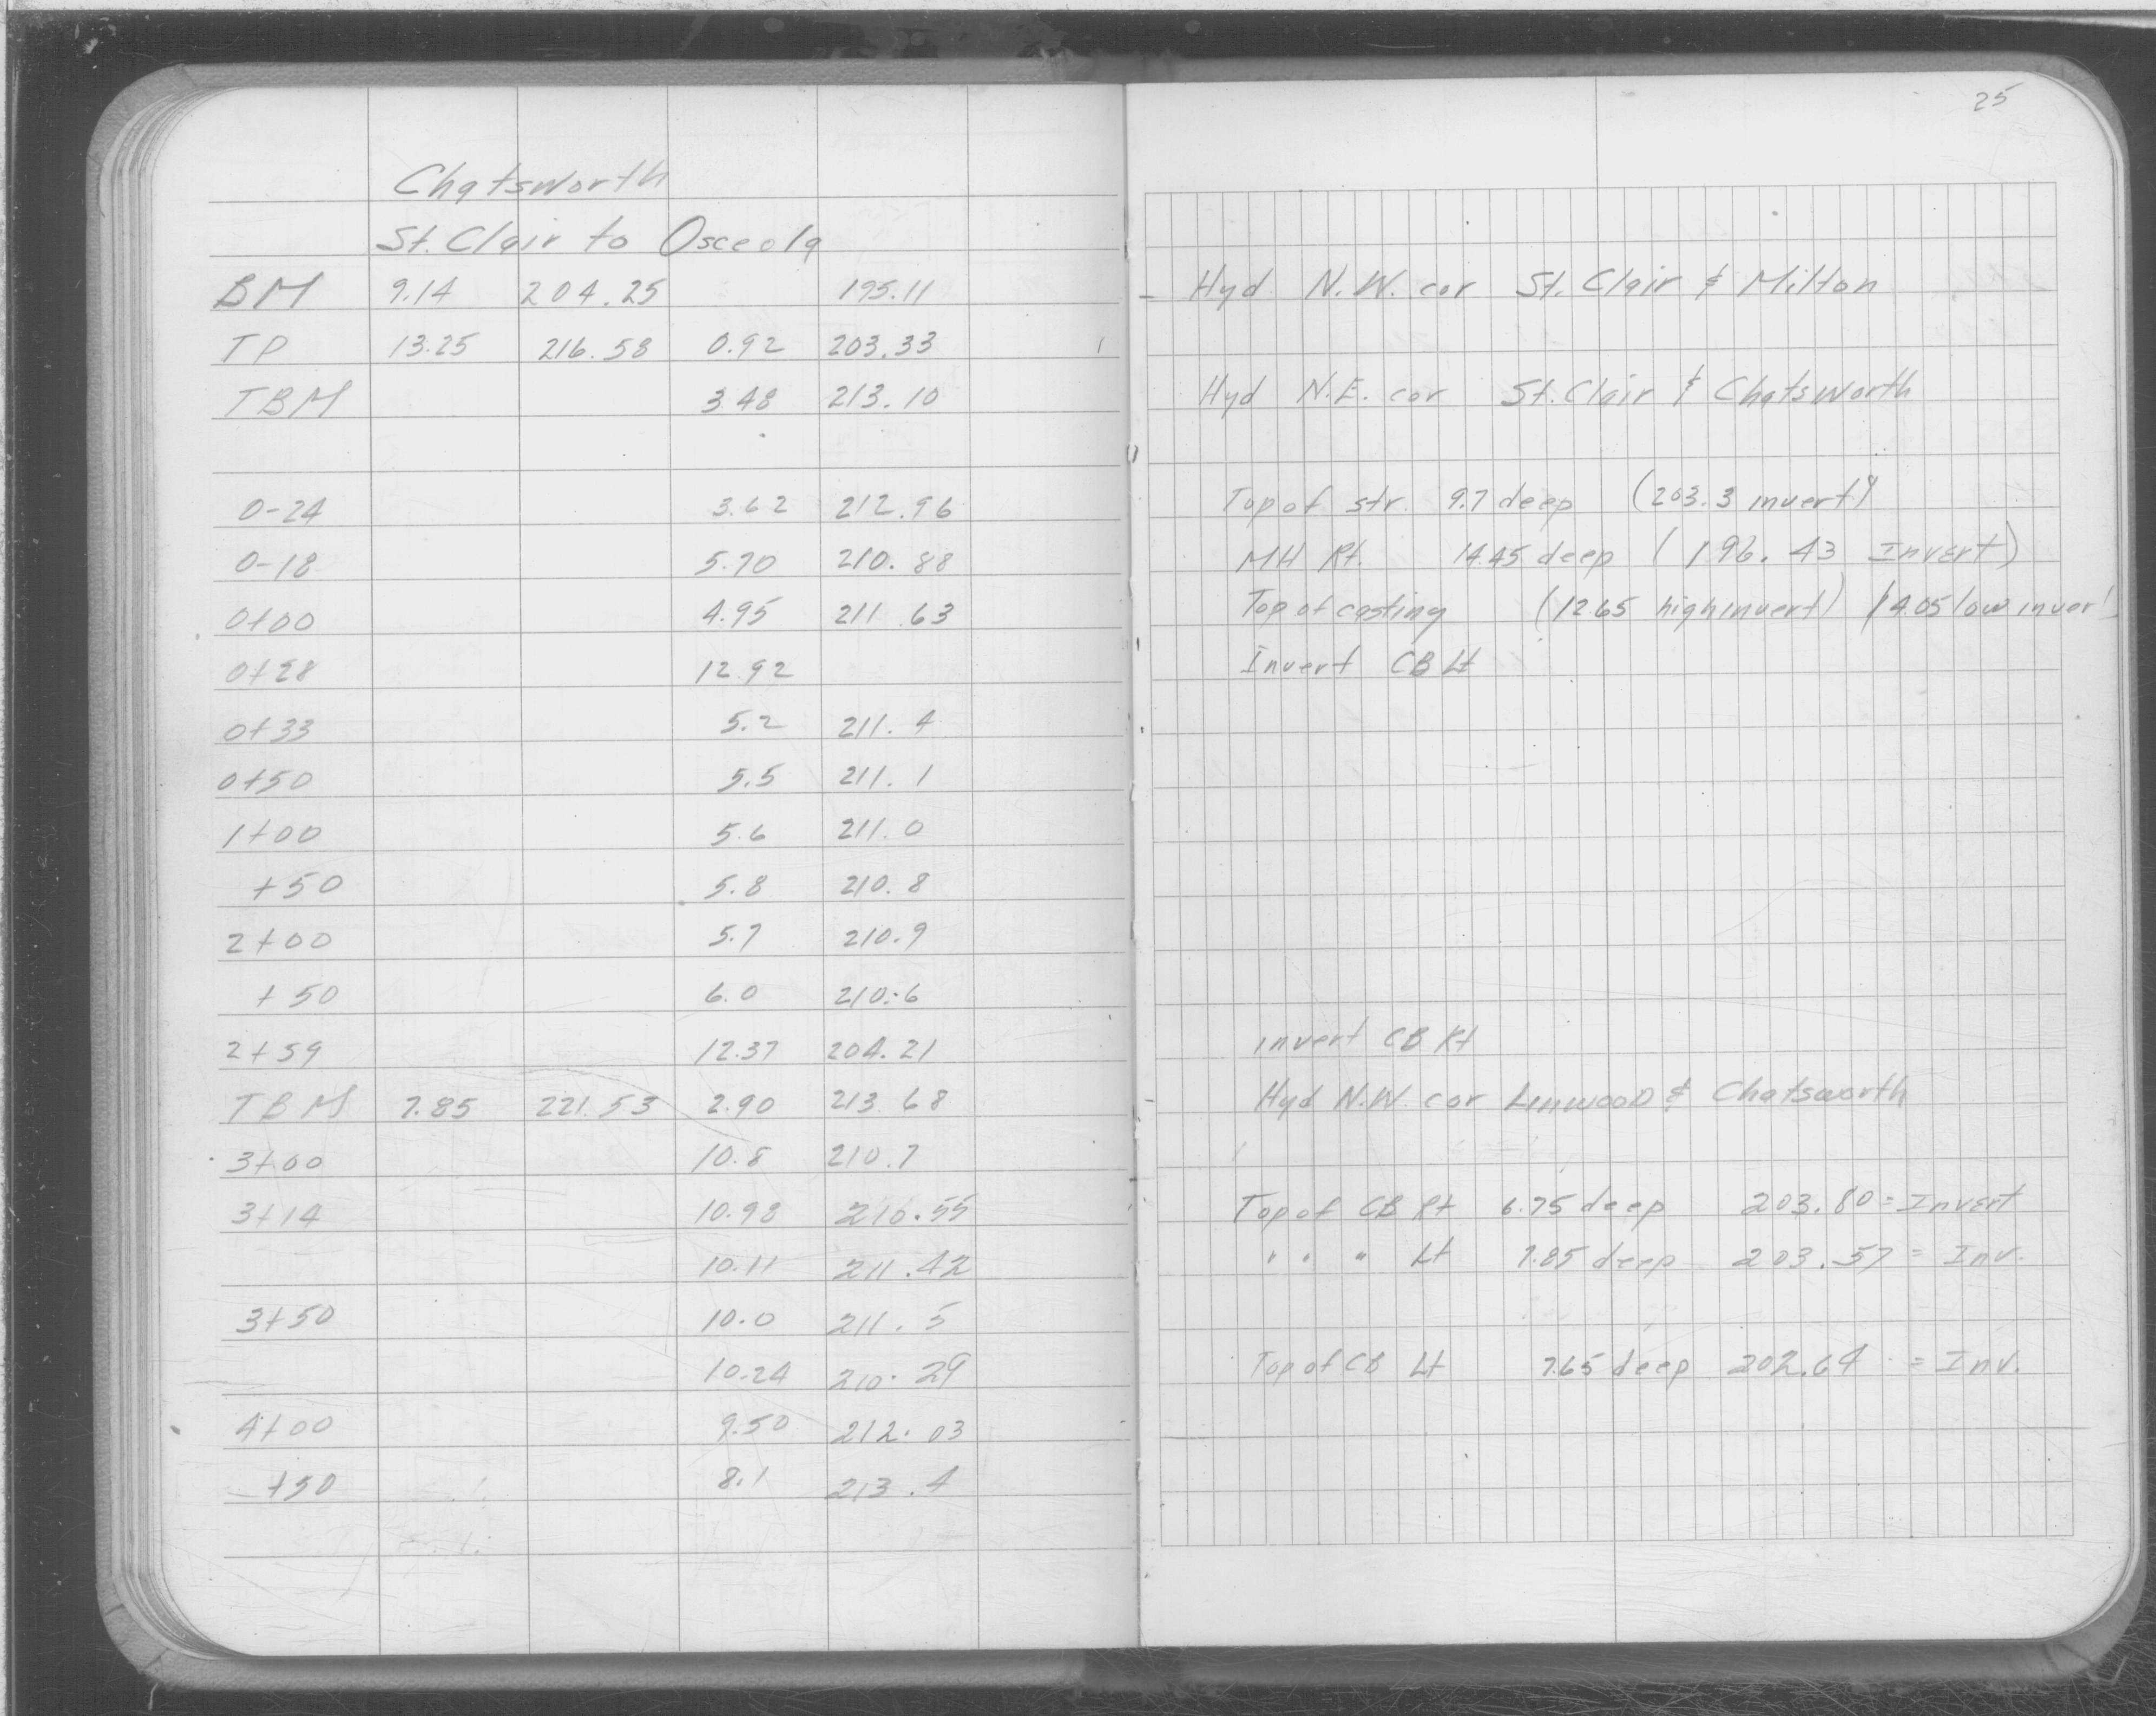 25
Chatsworth
St. Clair to Osceola
BM 9.14 204.25 195.11 Hyd. N.W. cor St. Clair & Milton
TP 13.25 216.58 0.92 203.33
TBM 3.48 213.10 Hyd N.E. cor St. Clair & Chatsworth
0-24 3.62 212.96 Top of str. 9.7 deep (203.3 invert)
0-18 5.70 210.88 MH Rt. 14.45 deep (196.43 Invert)
0+00 4.95 211.63 Top of casting (12.65 high invert) 14.05 low inver
0+28 12.92 Invert CB Lt
0+33 5.2 211.4
0+50 5.5 211.1
1+00 5.6 211.0
+50 5.8 210.8
2+00 5.7 210.9
+50 6.0 210.6
2+59 12.37 204.21 invert CB Rt
TBM 7.85 221.53 2.90 213.68 Hyd N.W. cor Linwood & Chatsworth
3+00 10.8 210.7
3+14 10.98 210.55 Top of CB Rt 6.75 deep 203.80 = Invert
10.11 211.42 " " " Lt 7.85 deep 203.57 = Inv.
3+50 10.0 211.5
10.24 210.29 Top of CB Lt 7.65 deep 202.64 = Inv.
4+00 9.50 212.03
+50 8.1 213.4